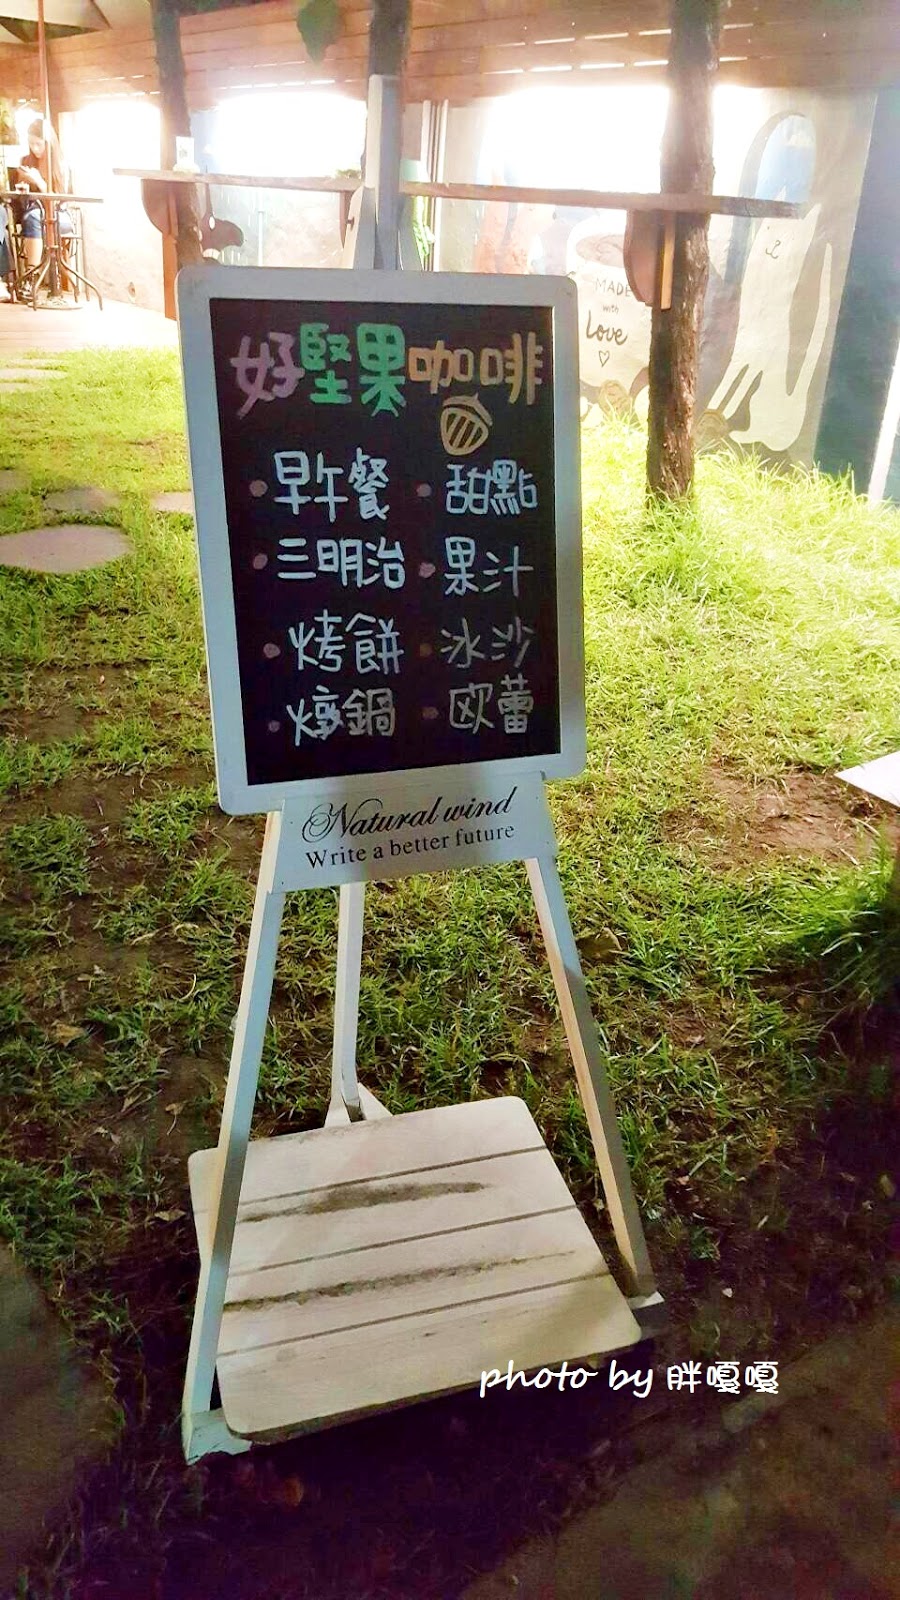 MADE
with
Love
好堅果咖啡
•早午餐 •甜點
•三明治 •果汁
•烤餅 •冰沙
•燉鍋 •欧蕾
Natural wind
Write a better future
photo by 胖嘎嘎